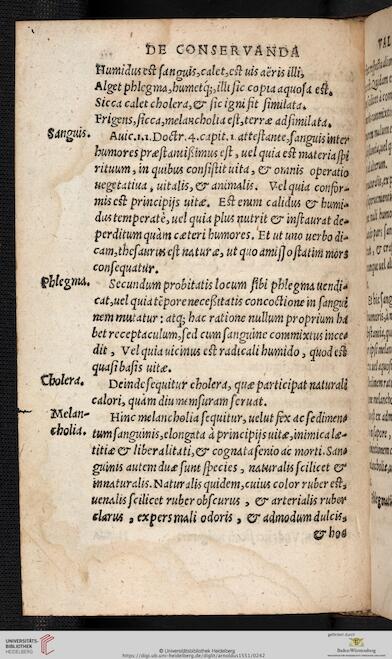 DE CONSERVANDA
Humidus est sanguis, calet, est uis aëris illi,
Alget phlegma, humetq́;, illi sic copia aquosa est.
Sicca calet cholera, & sic igni fit similata.
Frigens, sicca, melancholia est, terræ adsimilata.
Sanguis.
Auic.1.1. Doctr. 4. capit. 1. attestante, sanguis inter
humores præstantißimus est, uel quia est materia spi
rituum, in quibus consistit uita, & omnis operatio
uegetatiua, uitalis, & animalis. Vel quia confor-
mis est principijs uitæ. Est enim calidus & humi-
dus temperatè, uel quia plus nutrit & instaurat de-
perditum quàm cæteri humores. Et ut uno uerbo di-
cam, thesaurus est naturæ, ut quo amisso statim mors
consequatur.
Phlegma.
Secundum probitatis locum sibi phlegma uendi-
cat, uel quia tēpore neceßitatis concoctione in sangui
nem mutatur: atq; hac ratione nullum proprium ha
bet receptaculum, sed cum sanguine commixtus ince
dit, Vel quia uicinus est radicali humido, quod est
quasi basis uitæ.
Cholera.
Deinde sequitur cholera, quæ participat naturali
calori, quàm diu mensuram seruat.
Melan-
cholia.
Hinc melancholia sequitur, uelut fex ac sedimen-
tum sanguinis, elongata à principijs uitæ, inimica læ-
titiæ & liberalitati, & cognata senio ac morti. San-
guinis autem duæ sunt species, naturalis scilicet &
innaturalis. Naturalis quidem, cuius color ruber est,
uenalis scilicet ruber obscurus, & arterialis ruber
clarus, expers mali odoris, & admodum dulcis,
& hoc
UNIVERSITÄTS-
BIBLIOTHEK
HEIDELBERG
https://digi.ub.uni-heidelberg.de/diglit/arnoldus1551/0242
© Universitätsbibliothek Heidelberg
gefördert durch
Baden-Württemberg